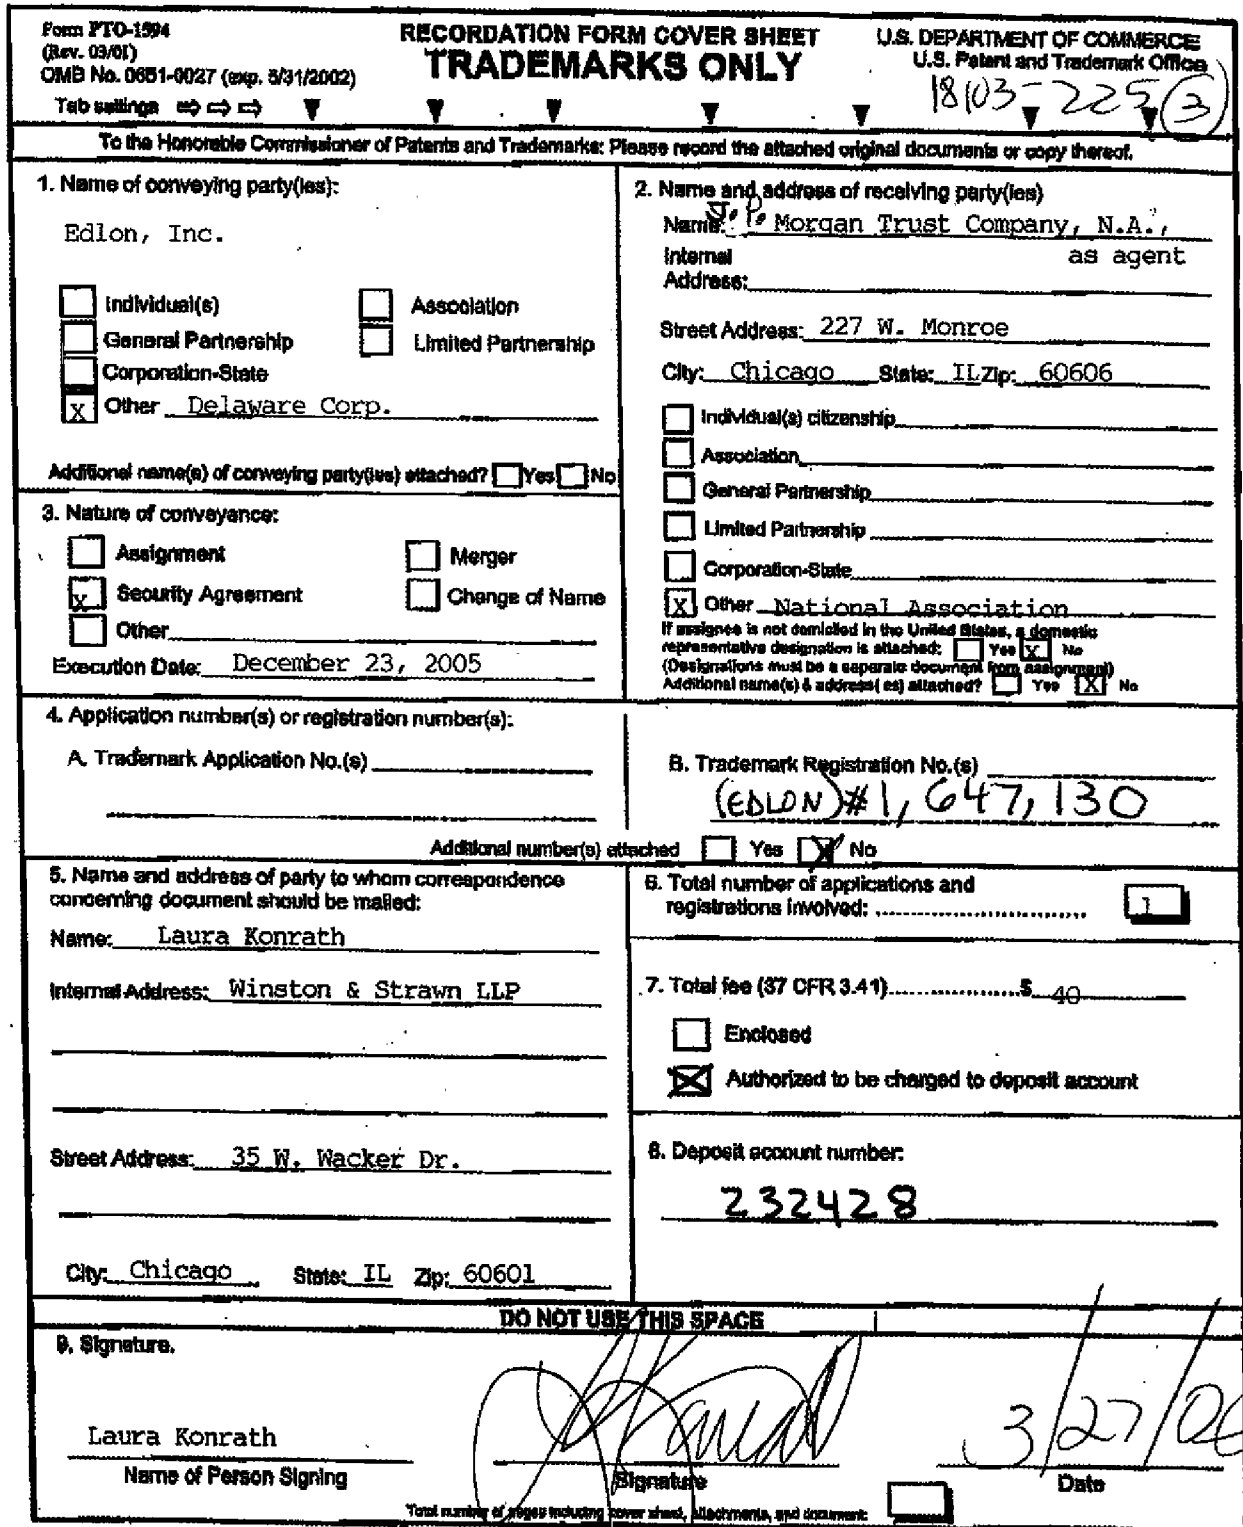 Form PTO-1594
(Rev. 03/01)
OMB No. 0651-0027 (exp. 5/31/2002)
Tab settings
RECORDATION FORM COVER SHEET
TRADEMARKS ONLY
U.S. DEPARTMENT OF COMMERCE
U.S. Patent and Trademark Office
18103-225 (3)
To the Honorable Commissioner of Patents and Trademarks: Please record the attached original documents or copy thereof.
1. Name of conveying party(ies):
Edlon, Inc.
Individual(s) Association
General Partnership Limited Partnership
Corporation-State
X Other Delaware Corp.
Additional name(s) of conveying party(ies) attached? Yes No
2. Name and address of receiving party(ies)
Name: J.P. Morgan Trust Company, N.A.,
Internal as agent
Address:
Street Address: 227 W. Monroe
City: Chicago State: IL Zip: 60606
Individual(s) citizenship
Association
General Partnership
Limited Partnership
Corporation-State
X Other National Association
If assignee is not domiciled in the United States, a domestic
representative designation is attached: Yes X No
(Designations must be a separate document from assignment)
Additional name(s) & address( es) attached? Yes X No
3. Nature of conveyance:
Assignment Merger
X Security Agreement Change of Name
Other
Execution Date: December 23, 2005
4. Application number(s) or registration number(s):
A. Trademark Application No.(s)
B. Trademark Registration No.(s)
(EDLON) #1,647,130
Additional number(s) attached Yes X No
5. Name and address of party to whom correspondence
concerning document should be mailed:
Name: Laura Konrath
Internal Address: Winston & Strawn LLP
Street Address: 35 W. Wacker Dr.
City: Chicago State: IL Zip: 60601
6. Total number of applications and
registrations involved: 1
7. Total fee (37 CFR 3.41) $ 40
Enclosed
X Authorized to be charged to deposit account
8. Deposit account number:
232428
DO NOT USE THIS SPACE
9. Signature.
Laura Konrath
3/27/06
Name of Person Signing Signature Date
Total number of pages including cover sheet, attachments, and document: